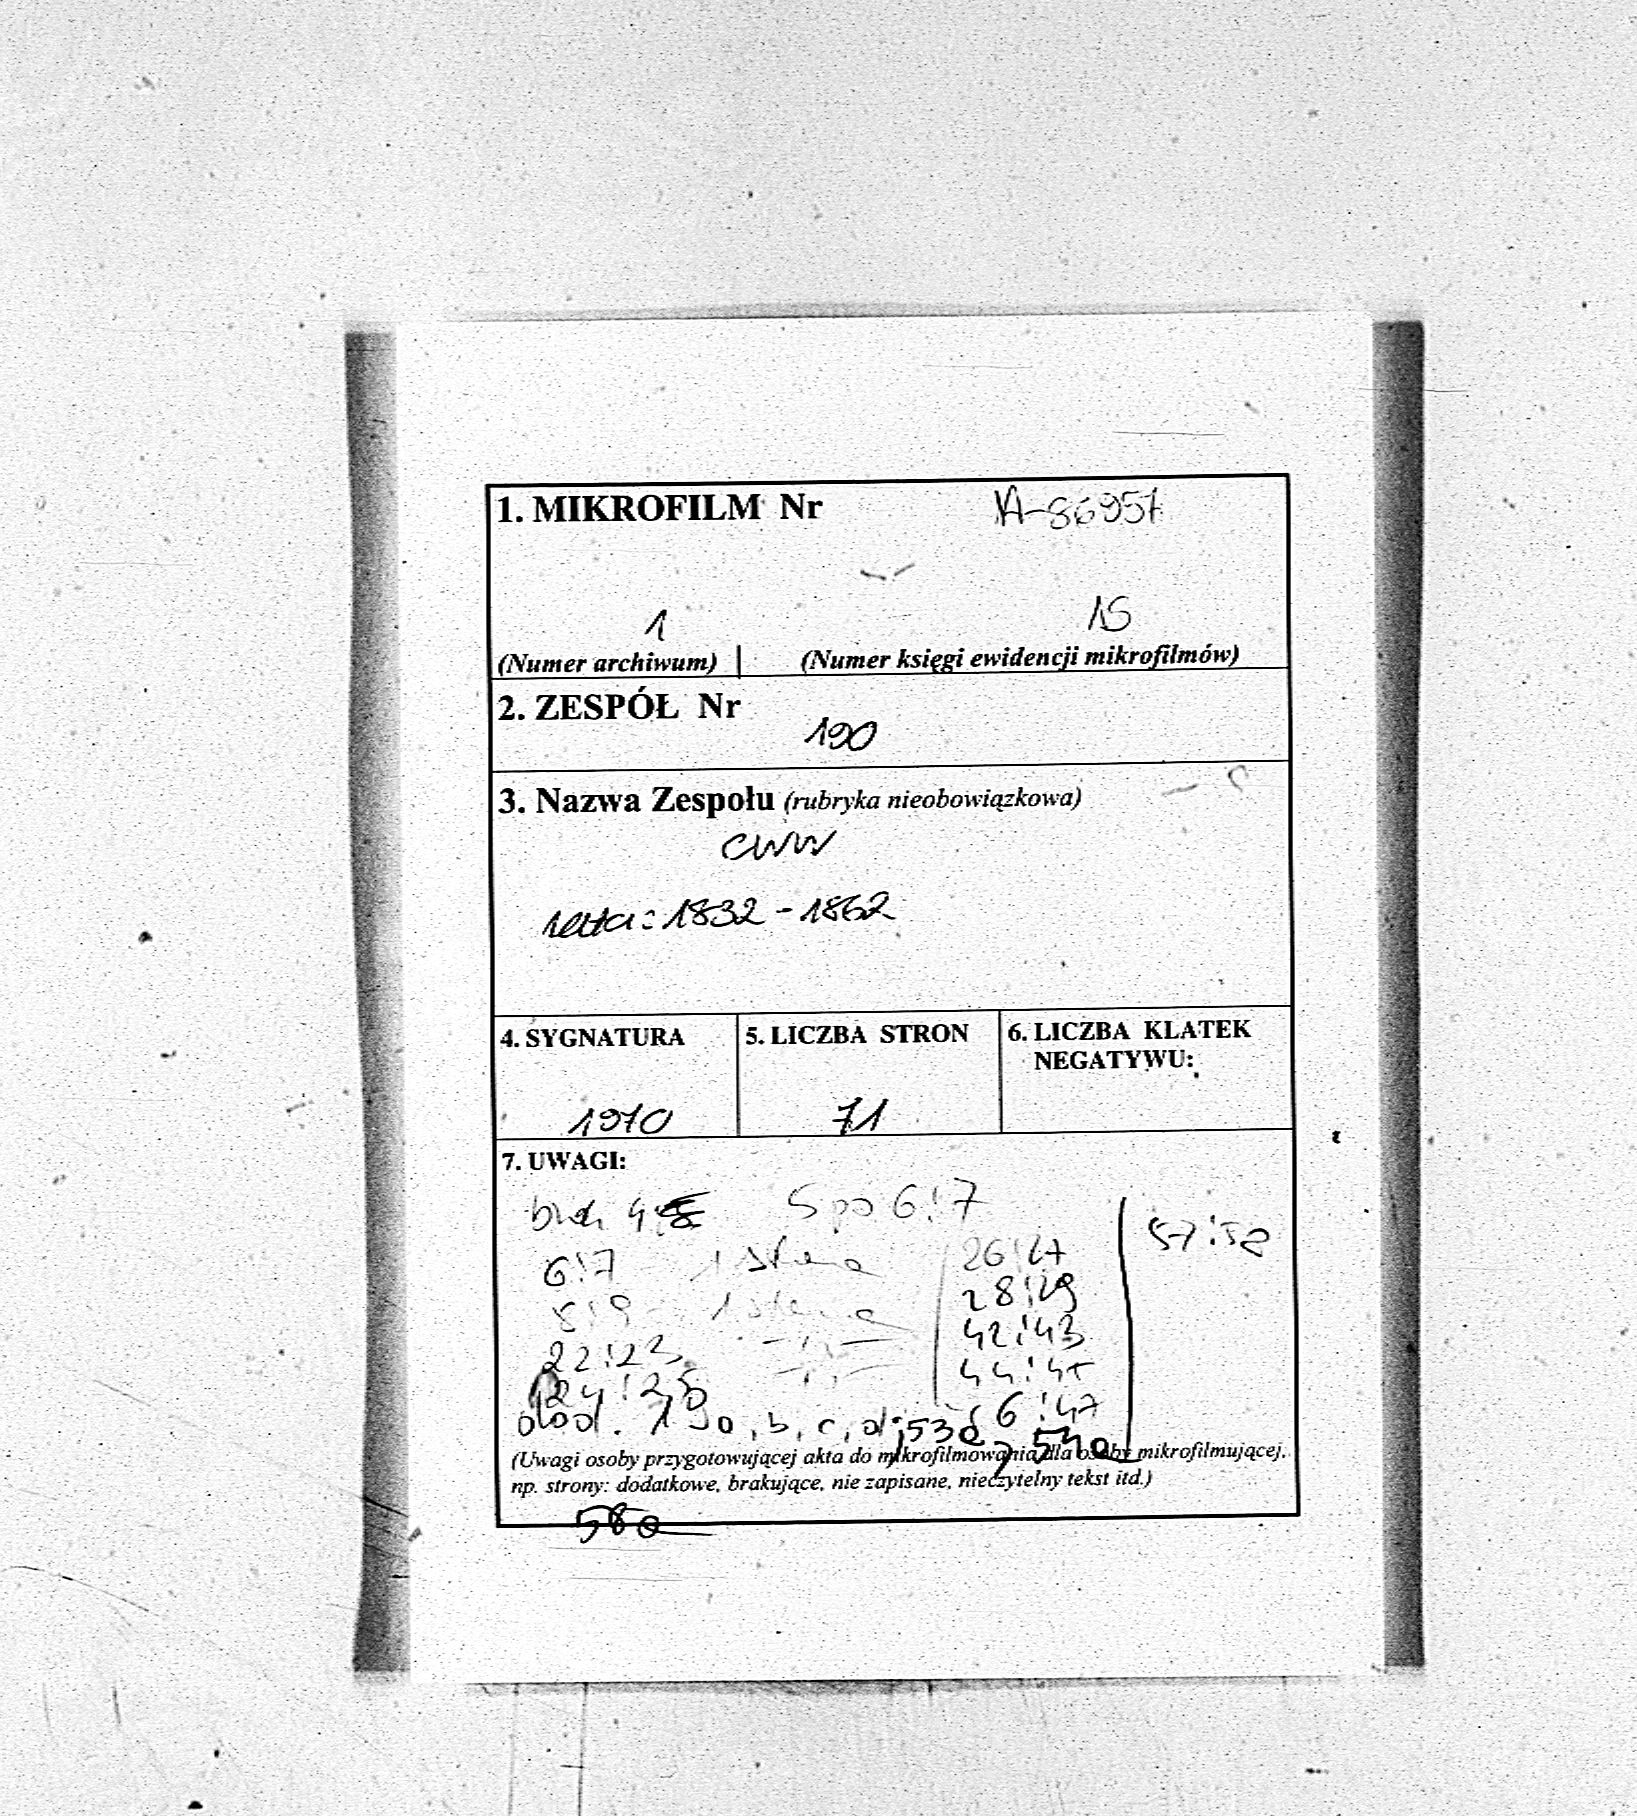 1. MIKROFILM Nr A-86957
1 15
(Numer archiwum) | (Numer księgi ewidencji mikrofilmów)
2. ZESPÓŁ Nr
190
3. Nazwa Zespołu (rubryka nieobowiązkowa)
CWW
1832-1862
4. SYGNATURA 5. LICZBA STRON 6. LICZBA KLATEK
NEGATYWU:
1970 71
7. UWAGI:
brak 4 5 po 6!7 57!58
6!7 - 1 strona 26!27
8!9 - 1 strona 28!29
22!23 -,,- 42!43
24!25 -,,- 44!45
dod. a, b, c, d; 53a, 54a 46!47
(Uwagi osoby przygotowującej akta do mikrofilmowania dla osoby mikrofilmującej,
np. strony: dodatkowe, brakujące, nie zapisane, nieczytelny tekst itd.)
58a